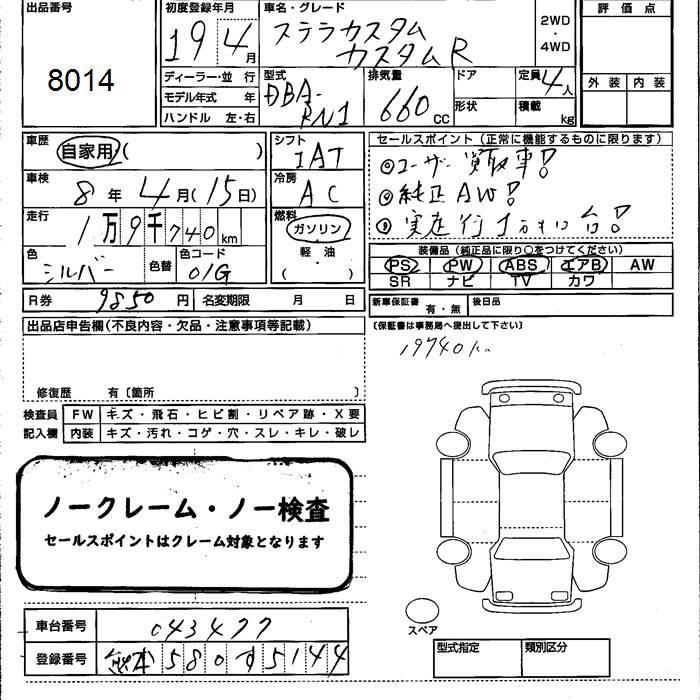 出品番号 8014
初度登録年月 19年4月
車名・グレード ステラカスタム カスタムR
2WD・4WD
評価点
外装 内装
ディーラー・並行
モデル年式 年
ハンドル 左・右
型式 DBA-RN1
排気量 660 CC
ドア
形状
定員 4人
積載 kg
車歴 自家用 ( )
車検 8年4月(15日)
走行 1万9千740km
色 シルバー 色替 色コード 01G
シフト IAT
冷房 AC
燃料 ガソリン
軽・油
( )
セールスポイント(正常に機能するものに限ります)
①ユーザー買取車!
②純正AW!
③実走行
装備品(純正品に限り○をつけてください)
PS PW ABS エアB AW
SR ナビ TV カワ
R券 9850円 名変期限 月 日
新車保証書 有・無 後日品
(保証書は事務局へ提出して下さい)
出品店申告欄(不良内容・欠品・注意事項等記載)
19740km
修復歴 有〔箇所 〕
検査員記入欄
FW キズ・飛石・ヒビ割・リペア跡・X要
内装 キズ・汚れ・コゲ・穴・スレ・キレ・破レ
ノークレーム・ノー検査
セールスポイントはクレーム対象となります
スペア
車台番号 043477
登録番号 熊本580す5144
型式指定 類別区分